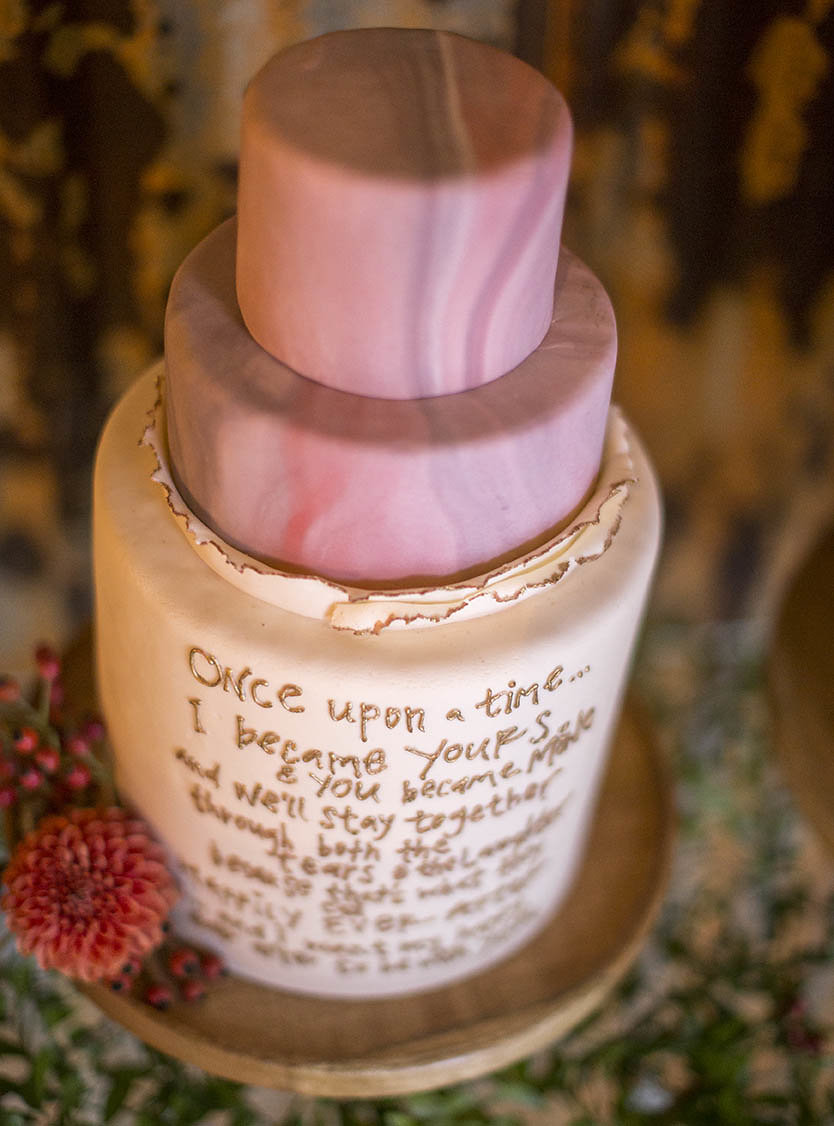 Once upon a time...
I became yours
& you became mine
and we'll stay together
through both the
tears & the laughter
because that's what they
call
happily ever after